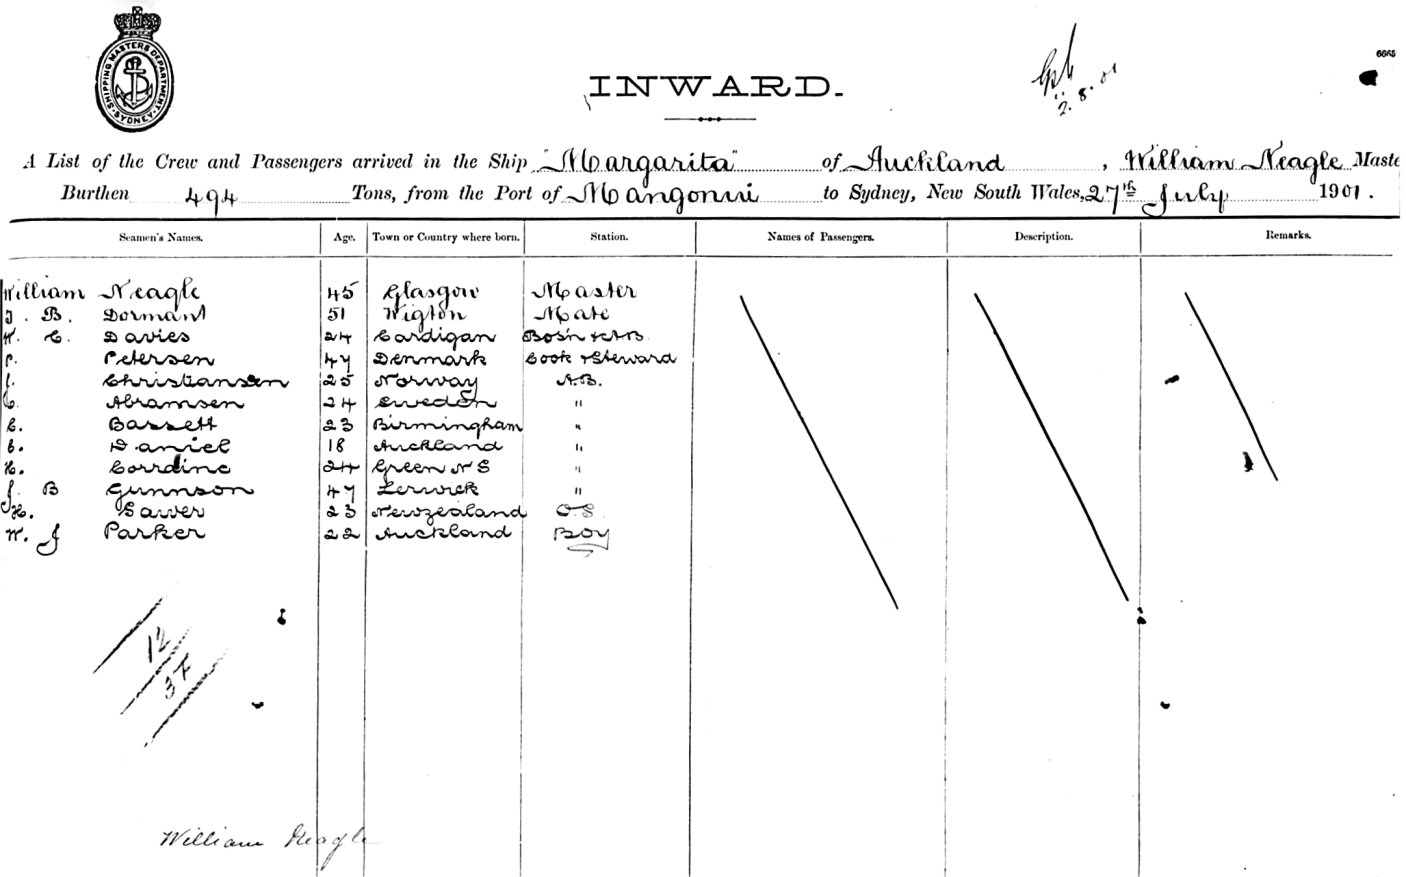 SHIPPING MASTERS DEPARTMENT. SYDNEY.
6665
2. 8. 01
INWARD.
A List of the Crew and Passengers arrived in the Ship "Margarita" of Auckland, William Neagle Maste
Burthen 494 Tons, from the Port of Mangonui to Sydney, New South Wales, 27th July 1901.
Seamen's Names. Age. Town or Country where born. Station. Names of Passengers. Description. Remarks.
William Neagle 45 Glasgow Master
J. B. Dormant 51 Wigton Mate
W. C. Davies 24 Cardigan Bos'n & AB
P. Petersen 47 Denmark Cook & Steward
J. Christiansen 25 Norway A.B.
C. Abramsen 24 Sweden "
C. Bassett 23 Birmingham "
C. Daniel 18 Auckland "
H. 24 Green N S "
J. B Gunnson 47 Lerwick "
H. Sawer 23 Newzealand O.S.
W. J Parker 22 Auckland Boy
12
William Neagle